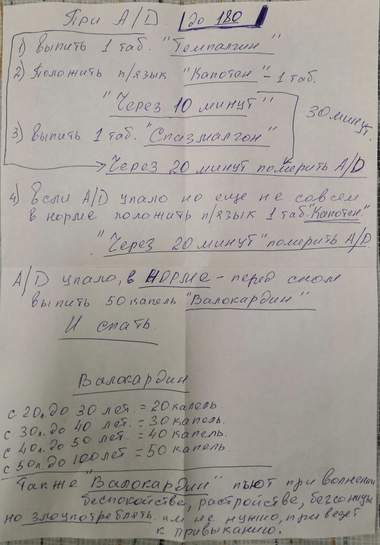 При A/D до 180
1) Выпить 1 таб. "Темпалгин"
2) Положить п/язык "Капотен" - 1 таб.
"Через 10 минут"
30 минут.
3) Выпить 1 таб. "Спазмалгон"
Через 20 минут померить A/D
4) Если A/D упало но еще не совсем
в норме положить п/язык 1 таб "Капотен"
"Через 20 минут" померить A/D
A/D упало, в норме - перед сном
выпить 50 капель "Валокардин"
И спать.
Валокардин
с 20л. до 30 лет. = 20 капель
с 30л. до 40 лет. = 30 капель.
с 40л. до 50 лет. = 40 капель.
с 50л до 100 лет = 50 капель
Также "Валокардин" пьют при волнении
беспокойстве, растройстве, бессонице
но злоупотреблять им не нужно, приведет
к привыканию.